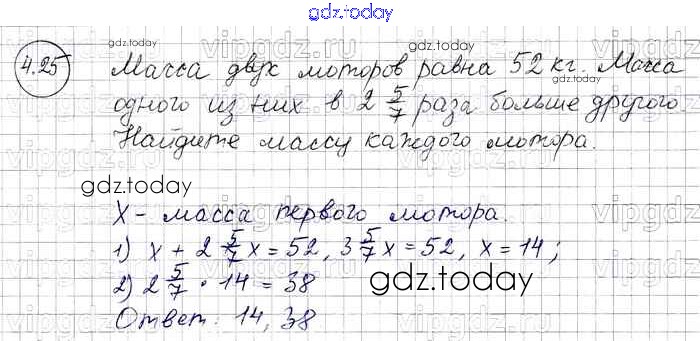 gdz.today
4.25
gdz.today
Масса двух моторов равна 52 кг. Масса
gdz.today
одного из них в 2 5/7 раза больше другого.
Найдите массу каждого мотора.
gdz.today
X - масса первого мотора.
1) x + 2 5/7 x = 52, 3 5/7 x = 52, x = 14;
2) 2 5/7 · 14 = 38
gdz.today
Ответ: 14, 38